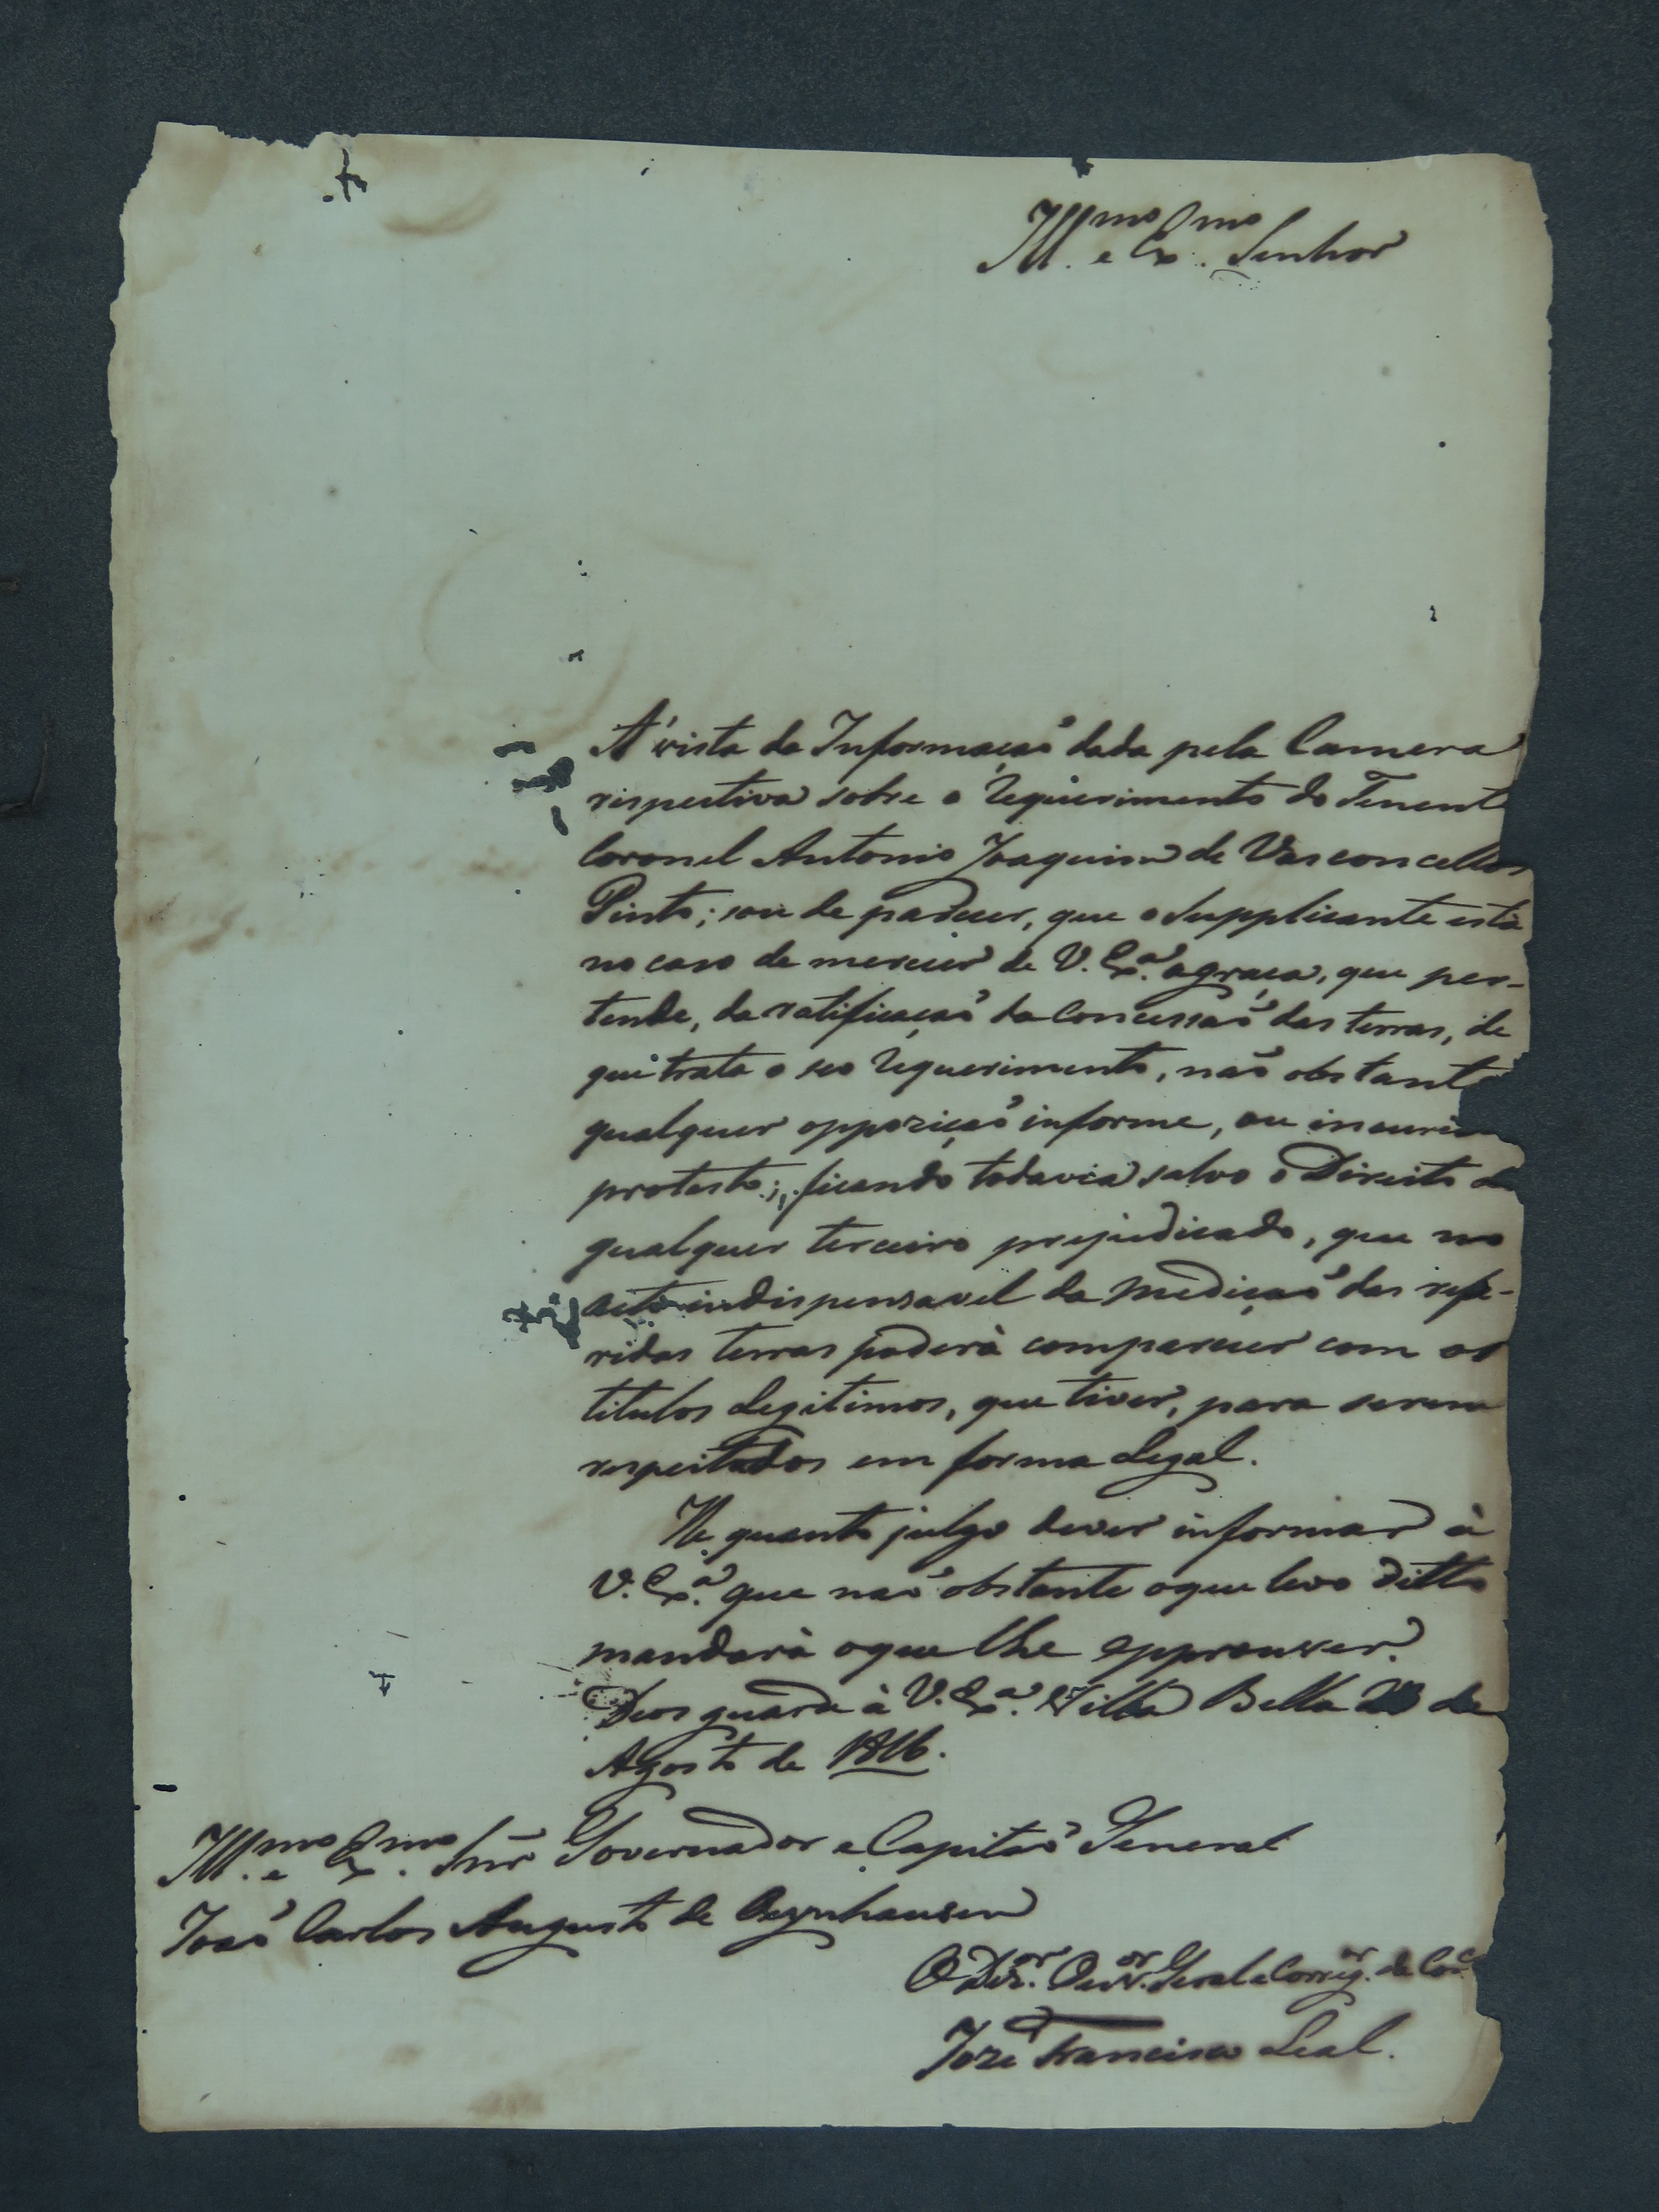 Ill.mo e Ex.mo Senhor
A' vista da Informaçaõ dada pela Camera
respectiva sobre o requerimento do Tenent
Coronel Antonio Joaquim de Vasconcellos
Pinto; sou de parecer, que o Supplicante está
no caso de merecer de V. Ex.a a graça, que per-
tende, da ratificaçaõ da Concessaõ das terras, de
que trata o seo requerimento, naõ obstant
qualquer oppoziçaõ informe, ou incuri
protesto; ficando todavia salvo o Direito de
qualquer terceiro prejudicado, que no
acto indispensavel da Mediçaõ das refe-
ridas terras poderà comparecer com os
titulos Legitimos, que tiver, para serem
respeitados em forma Legal.
He quanto julgo dever informar à
V. Ex.a que naõ obstante o que levo ditto
mandarà o que lhe approuver.
Deos guarde à V. Ex.a Villa Bella de
Agosto de 1816.
Ill.mo e Ex.mo Snr̃ Governador e Capitaõ General
Joaõ Carlos Augusto de Oeynhausen
O Dez.or Ouv.or Geral e Correg.or da Com
Joze Francisco Leal.